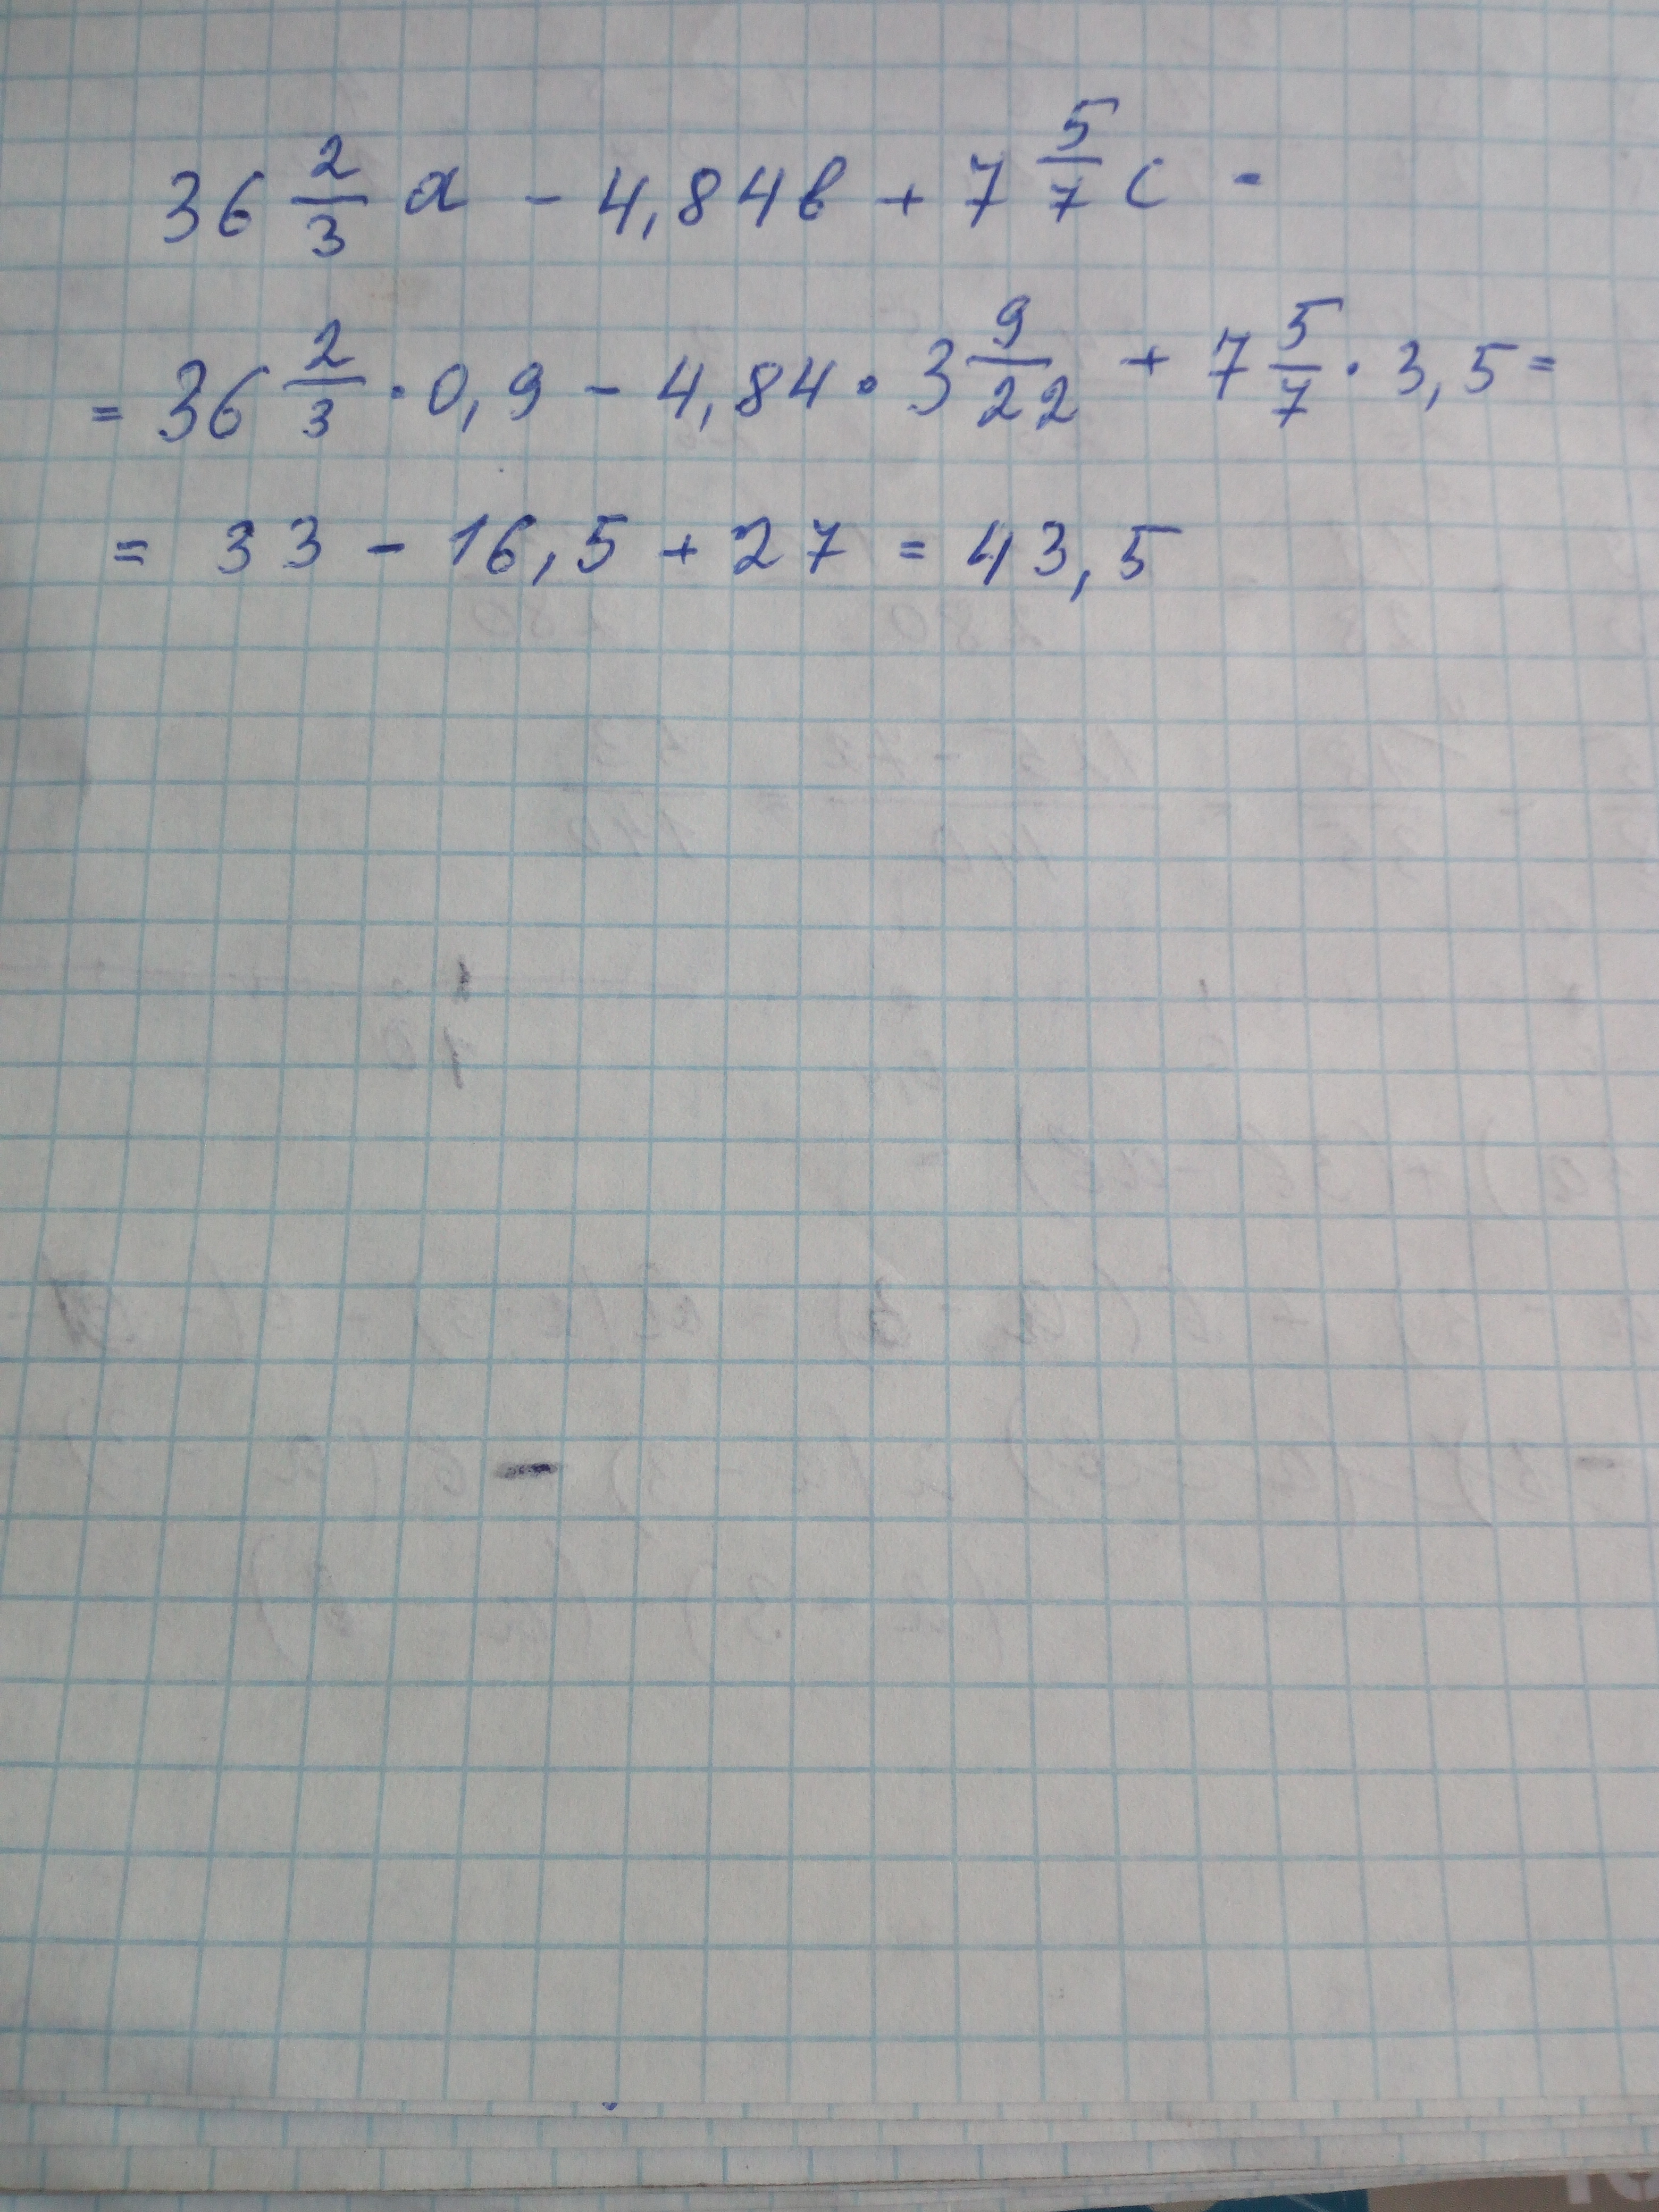 36 2/3 a - 4,84в + 7 5/7 с =
= 36 2/3 · 0,9 - 4,84 · 3 9/22 + 7 5/7 · 3,5 =
= 33 - 16,5 + 27 = 43,5